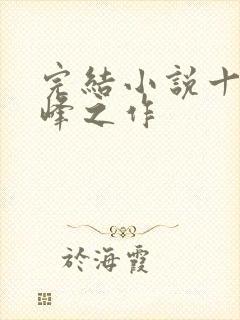 完結小說十
峰之作
於海霞